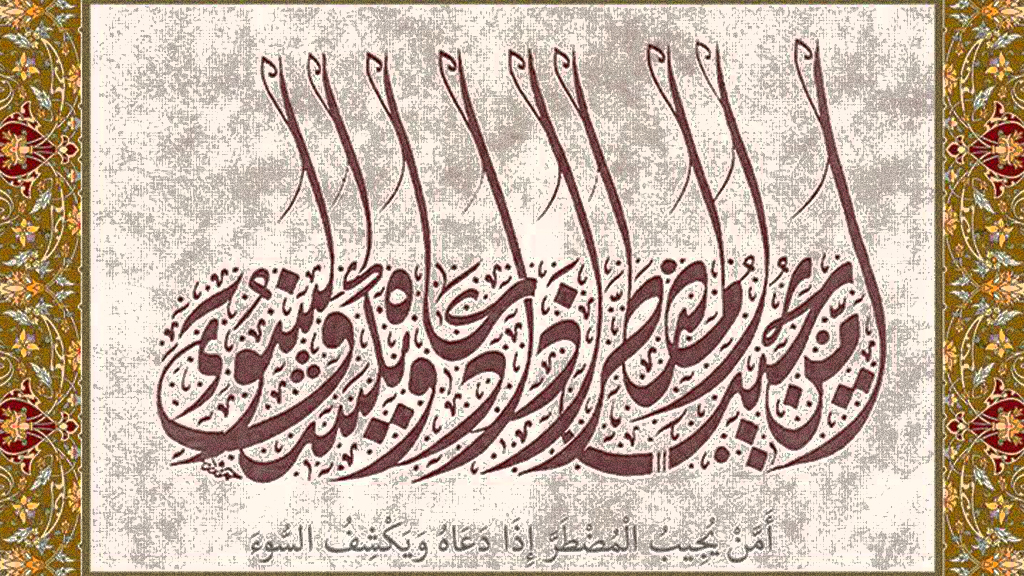 أمن يجيب المضطر إذا دعاه ويكشف السوء
أَمَّنْ يُجِيبُ الْمُضْطَرَّ إِذَا دَعَاهُ وَيَكْشِفُ السُّوءَ